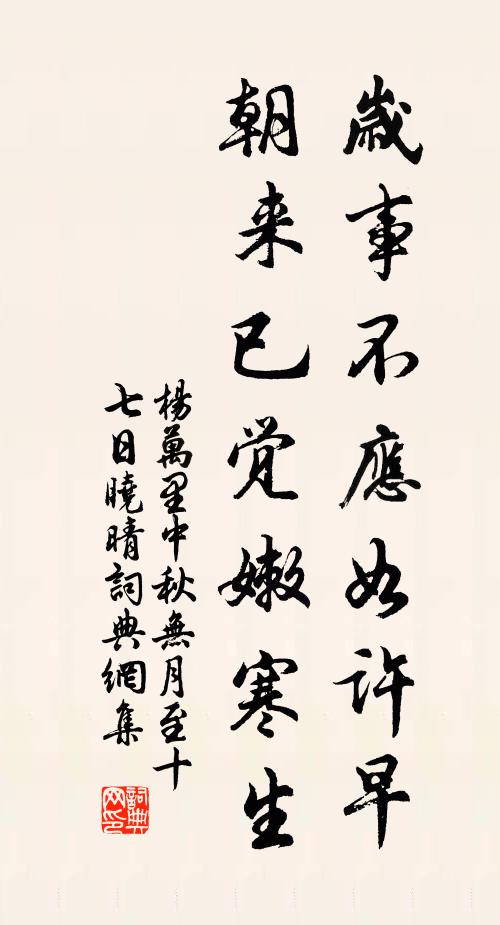 歲事不應如許早
朝来已觉嫩寒生
楊萬里中秋無月至十
七日曉晴詞典網集
詞典
网印